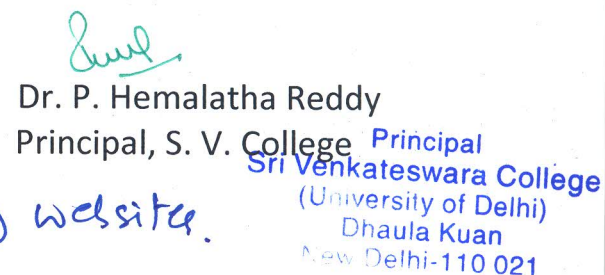 Dr. P. Hemalatha Reddy
Principal, S. V. College
Principal
Sri Venkateswara College
(University of Delhi)
Dhaula Kuan
New Delhi-110 021
website.